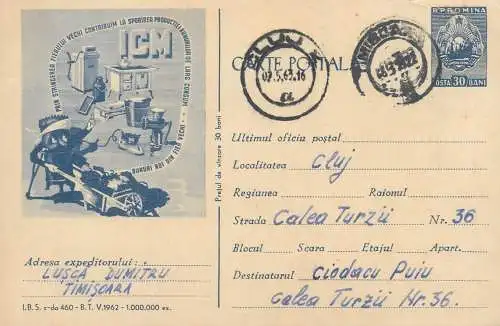 PRIN STRINGEREA FIERULUI VECHI CONTRIBUIM LA SPORIREA PRODUCȚIEI BUNURILOR DE LARG CONSUM
ICM
BUNURI NOI DIN FIER VECHI
Adresa expeditorului:
LUSCA DUMITRU
TIMIȘOARA
I.B.S. c-da 460 - B.T. V.1962 - 1.000.000 ex.
Prețul de vînzare 30 bani
CARTE POȘTALĂ
CLUJ
02.5.63.16
R.P.ROMINA
POSTA 30 BANI
Ultimul oficiu poștal
Localitatea Cluj
Regiunea Raionul
Strada Calea Turzii Nr. 36
Blocul Scara Etajul Apart.
Destinatarul Ciodacu Puiu
Calea Turzii Nr. 36.